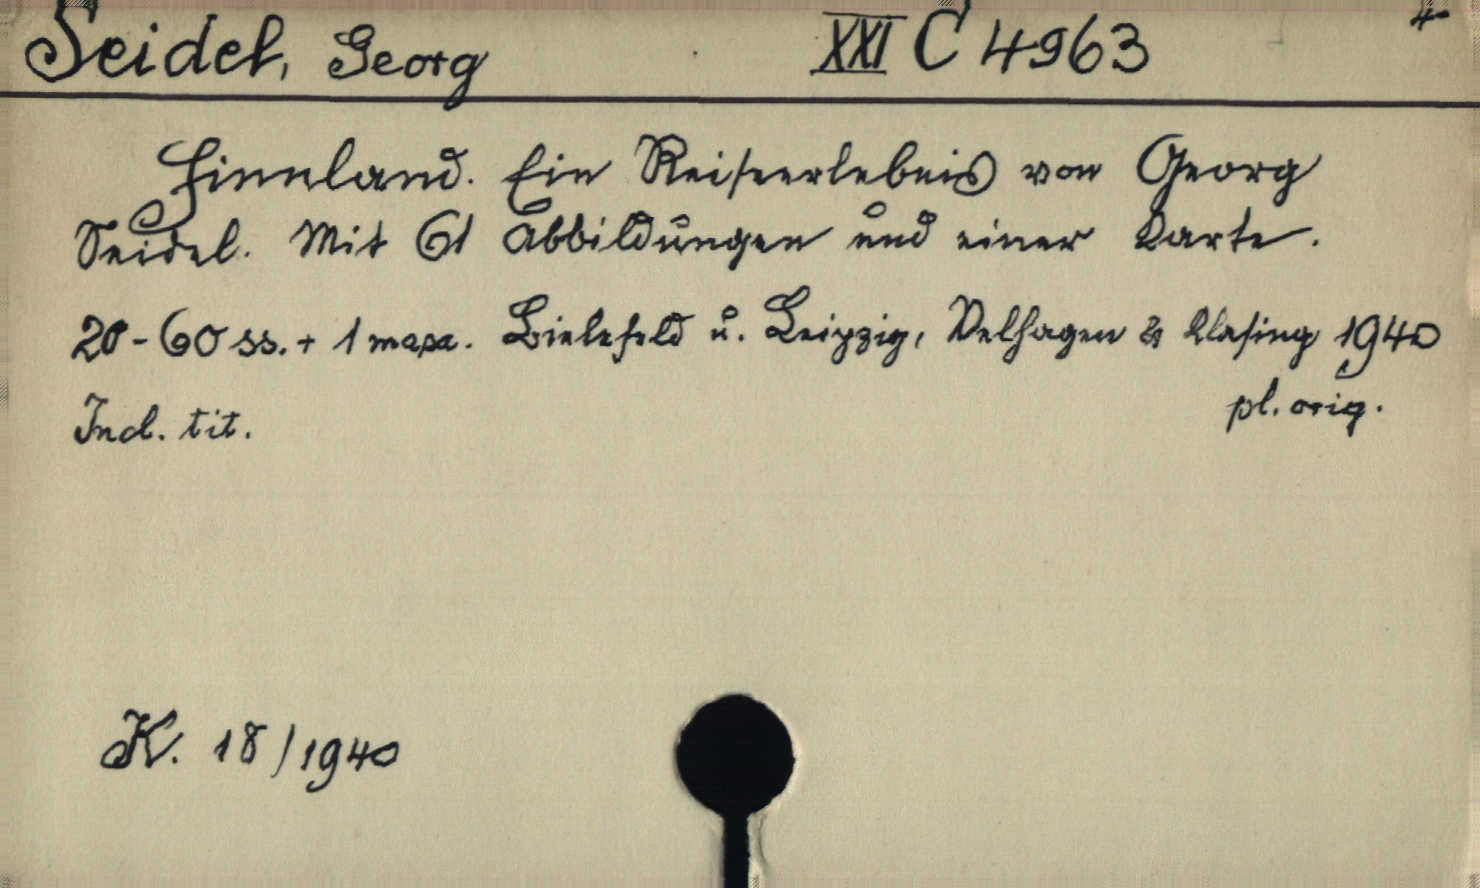 Seidel, Georg XXI C 4963 4-
Finnland. Ein Reiseerlebnis von Georg
Seidel. Mit 61 Abbildungen und einer Karte.
20 - 60 ss. + 1 mapa. Bielefeld u. Leipzig, Velhagen & Klasing 1940
Incl. tit. pl. orig.
K. 18/1940